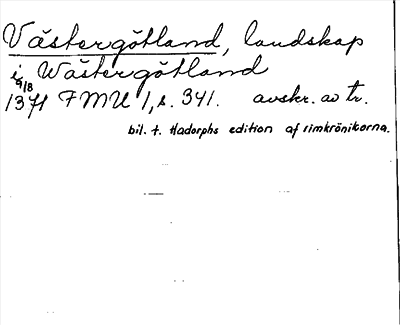 Västergötland, landskap
i Wästergötland
9/8
1371 FMU 1, s. 341. avskr. av tr.
bil. t. Hadorphs edition af rimkrönikorna.